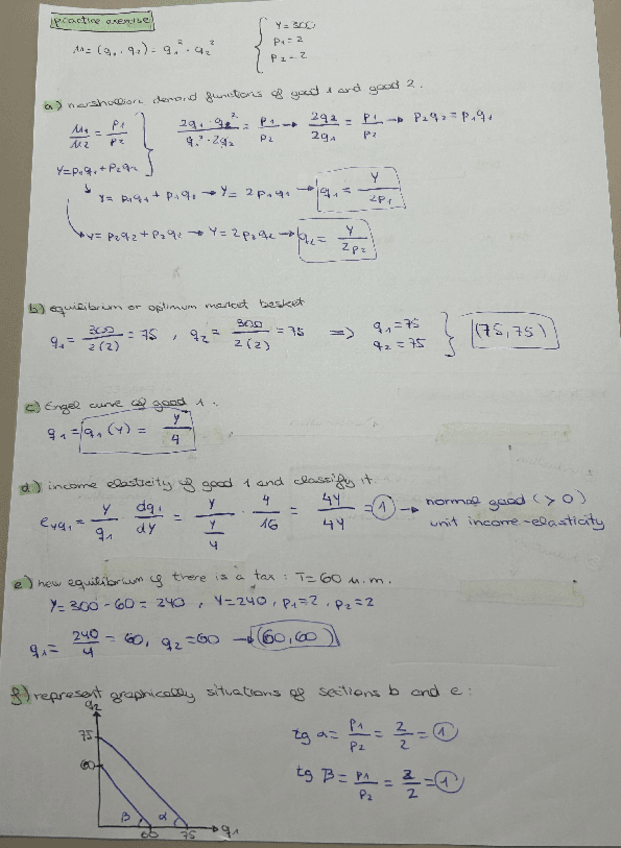 practice exercise
u = (q₁ · q₂) = q₁² · q₂²
Y = 300
P₁ = 2
P₂ = 2
a) marshallian demand functions of good 1 and good 2.
u₁/u₂ = P₁/P₂ } 2q₁ · q₂²/q₁² · 2q₂ = P₁/P₂ → 2q₂/2q₁ = P₁/P₂ → P₂q₂ = P₁q₁
Y = P₁q₁ + P₂q₂
Y = P₁q₁ + P₁q₁ → Y = 2P₁q₁ → q₁ = Y/2P₁
Y = P₂q₂ + P₂q₂ → Y = 2P₂q₂ → q₂ = Y/2P₂
b) equilibrium or optimum market basket
q₁ = 300/2(2) = 75 , q₂ = 300/2(2) = 75 ⇒ q₁ = 75 q₂ = 75 } (75,75)
c) Engel curve of good 1.
q₁ = q₁(Y) = Y/4
d) income elasticity of good 1 and classify it.
eyq₁ = Y/q₁ dq₁/dY = Y/(Y/4) · 4/16 = 4Y/4Y = 1 → normal good (> 0)
unit income-elasticity
e) new equilibrium if there is a tax : T = 60 u.m.
Y = 300 - 60 = 240 , Y = 240 , P₁ = 2 , P₂ = 2
q₁ = 240/4 = 60, q₂ = 60 → (60,60)
f) represent graphically situations of sections b and e :
q₂
75
60
β α
60 75 q₁
tg α = P₁/P₂ = 2/2 = 1
tg β = P₁/P₂ = 2/2 = 1